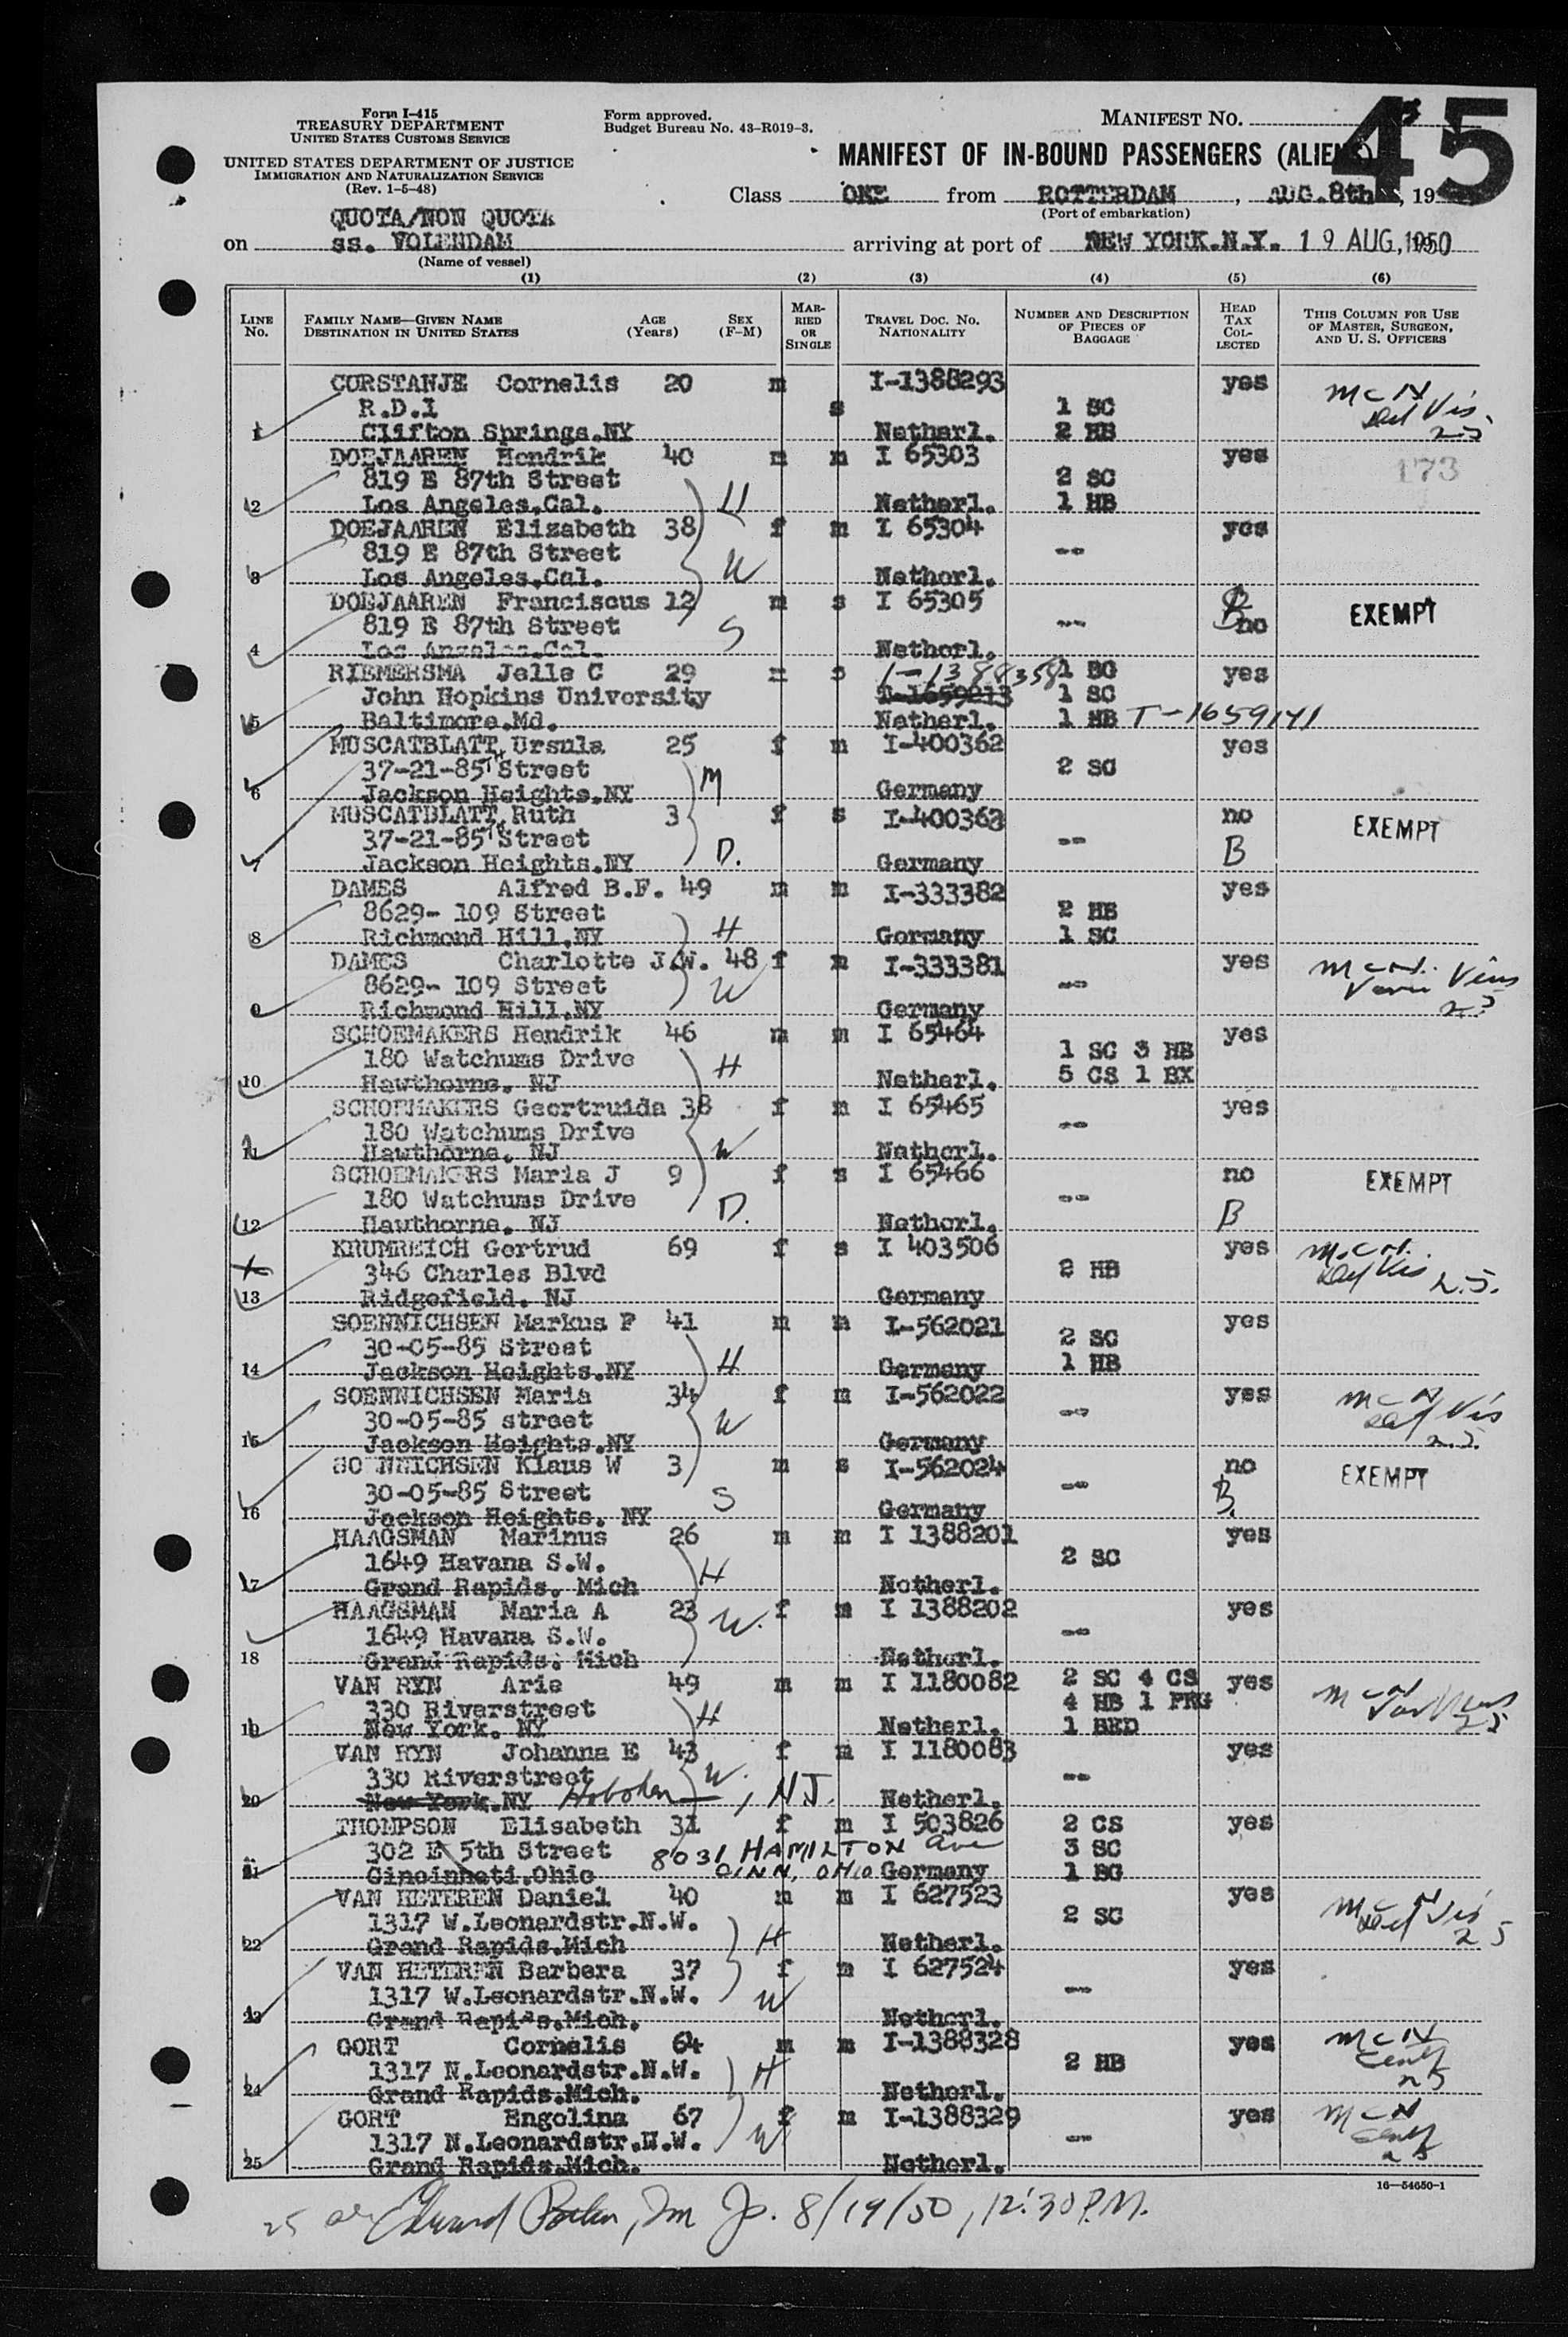 Form I-415
TREASURY DEPARTMENT
UNITED STATES CUSTOMS SERVICE
UNITED STATES DEPARTMENT OF JUSTICE
IMMIGRATION AND NATURALIZATION SERVICE
(Rev. 1-5-48)
Form approved.
Budget Bureau No. 43-R019-3.
MANIFEST NO.
45
MANIFEST OF IN-BOUND PASSENGERS (ALIENS)
Class ONE from ROTTERDAM, AUG.8th, 19
(Port of embarkation)
QUOTA/NON QUOTA
on ss. VOLENDAM arriving at port of NEW YORK.N.Y. 19 AUG, 1950
(Name of vessel)
(1) (2) (3) (4) (5) (6)
LINE No. FAMILY NAME—GIVEN NAME DESTINATION IN UNITED STATES AGE (Years) SEX (F-M) MARRIED OR SINGLE TRAVEL DOC. No. NATIONALITY NUMBER AND DESCRIPTION OF PIECES OF BAGGAGE HEAD TAX COLLECTED THIS COLUMN FOR USE OF MASTER, SURGEON, AND U. S. OFFICERS
CORSTANJE Cornelis 20 m I-1388293 yes McN
R.D.1 s 1 SC Def Vis.
1 Clifton Springs.NY Netherl. 2 HB 25
DOEJAAREN Hendrik 40 m m I 65303 yes 173
819 E 87th Street 2 SC
2 Los Angeles.Cal. H Netherl. 1 HB
DOEJAAREN Elizabeth 38 f m I 65304 yes
819 E 87th Street --
3 Los Angeles.Cal. W Netherl.
DOEJAAREN Franciscus 12 m s I 65305 B no EXEMPT
819 E 87th Street S --
4 Los Angeles.Cal. Netherl.
RIEMERSMA Jelle C 29 m s I-1388358 1 BG yes
John Hopkins University T-1659213 1 SC
5 Baltimore.Md. Netherl. 1 HB T-1659141
MUSCATBLATT, Ursula 25 f m I-400362 yes
37-21-85TH Street 2 SC
6 Jackson Heights.NY M Germany
MUSCATBLATT, Ruth 3 f s I-400363 no EXEMPT
37-21-85TH Street --
7 Jackson Heights.NY D. Germany B
DAMES Alfred B.F. 49 m m I-333382 yes
8629- 109 Street 2 HB
8 Richmond Hill.NY H Germany 1 SC
DAMES Charlotte J.W. 48 f m I-333381 yes McN.
8629- 109 Street W --
9 Richmond Hill.NY Germany
SCHOEMAKERS Hendrik 46 m m I 65464 yes
180 Watchums Drive H 1 SC 3 HB
10 Hawthorne. NJ Netherl. 5 CS 1 BX
SCHOEMAKERS Geertruida 38 f m I 65465 yes
180 Watchums Drive --
11 Hawthorne. NJ W Netherl.
SCHOEMAKERS Maria J 9 f s I 65466 no EXEMPT
180 Watchums Drive D. --
12 Hawthorne. NJ Netherl. B
KRUMREICH Gertrud 69 f s I 403506 yes McN.
346 Charles Blvd 2 HB Def Vis
13 Ridgefield. NJ Germany 2.5.
SOENNICHSEN Markus P 41 m m I-562021 yes
30-05-85 Street 2 SC
14 Jackson Heights.NY H Germany 1 HB
SOENNICHSEN Maria 34 f m I-562022 yes McN
30-05-85 street W -- Def Vis
15 Jackson Heights.NY Germany 2.5.
SO NNICHSEN Klaus W 3 m s I-562024 no EXEMPT
30-05-85 Street S --
16 Jackson Heights. NY Germany B.
HAAGSMAN Marinus 26 m m I 1388201 yes
1649 Havana S.W. H 2 SC
17 Grand Rapids. Mich Netherl.
HAAGSMAN Maria A 23 f m I 1388202 yes
1649 Havana S.W. W. --
18 Grand Rapids. Mich Netherl.
VAN RYN Arie 49 m m I 1180082 2 SC 4 CS yes McN
330 Riverstreet H 4 HB 1 PKG
19 New York. NY Netherl. 1 BED 25
VAN RYN Johanna E 43 f m I 1180083 yes
330 Riverstreet W. --
20 New York.NY Hoboken, NJ. Netherl.
THOMPSON Elisabeth 31 f m I 503826 2 CS yes
302 E 5th Street 8031 HAMILTON Ave 3 SC
21 Cincinnati.Ohio CINN, OHIO Germany 1 BG
VAN HETEREN Daniel 40 m m I 627523 yes McN
1317 W.Leonardstr.N.W. 2 SC Def Vis
22 Grand Rapids.Mich H Netherl. 25
VAN HETEREN Barbera 37 f m I 627524 yes
1317 W.Leonardstr.N.W. W --
23 Grand Rapids.Mich. Netherl.
GORT Cornelis 64 m m I-1388328 yes McN
1317 N.Leonardstr.N.W. H 2 HB
24 Grand Rapids.Mich. Netherl. 25
GORT Engolina 67 f m I-1388329 yes McN
1317 N.Leonardstr.N.W. W --
25 Grand Rapids.Mich. Netherl. 25
16—54650-1
25 Edward 8/19/50, 12:30 P.M.